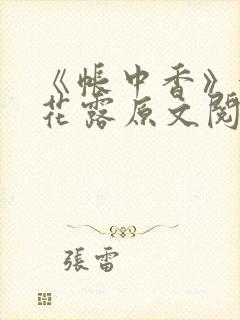 《帐中香》
花露原文阅
張雷